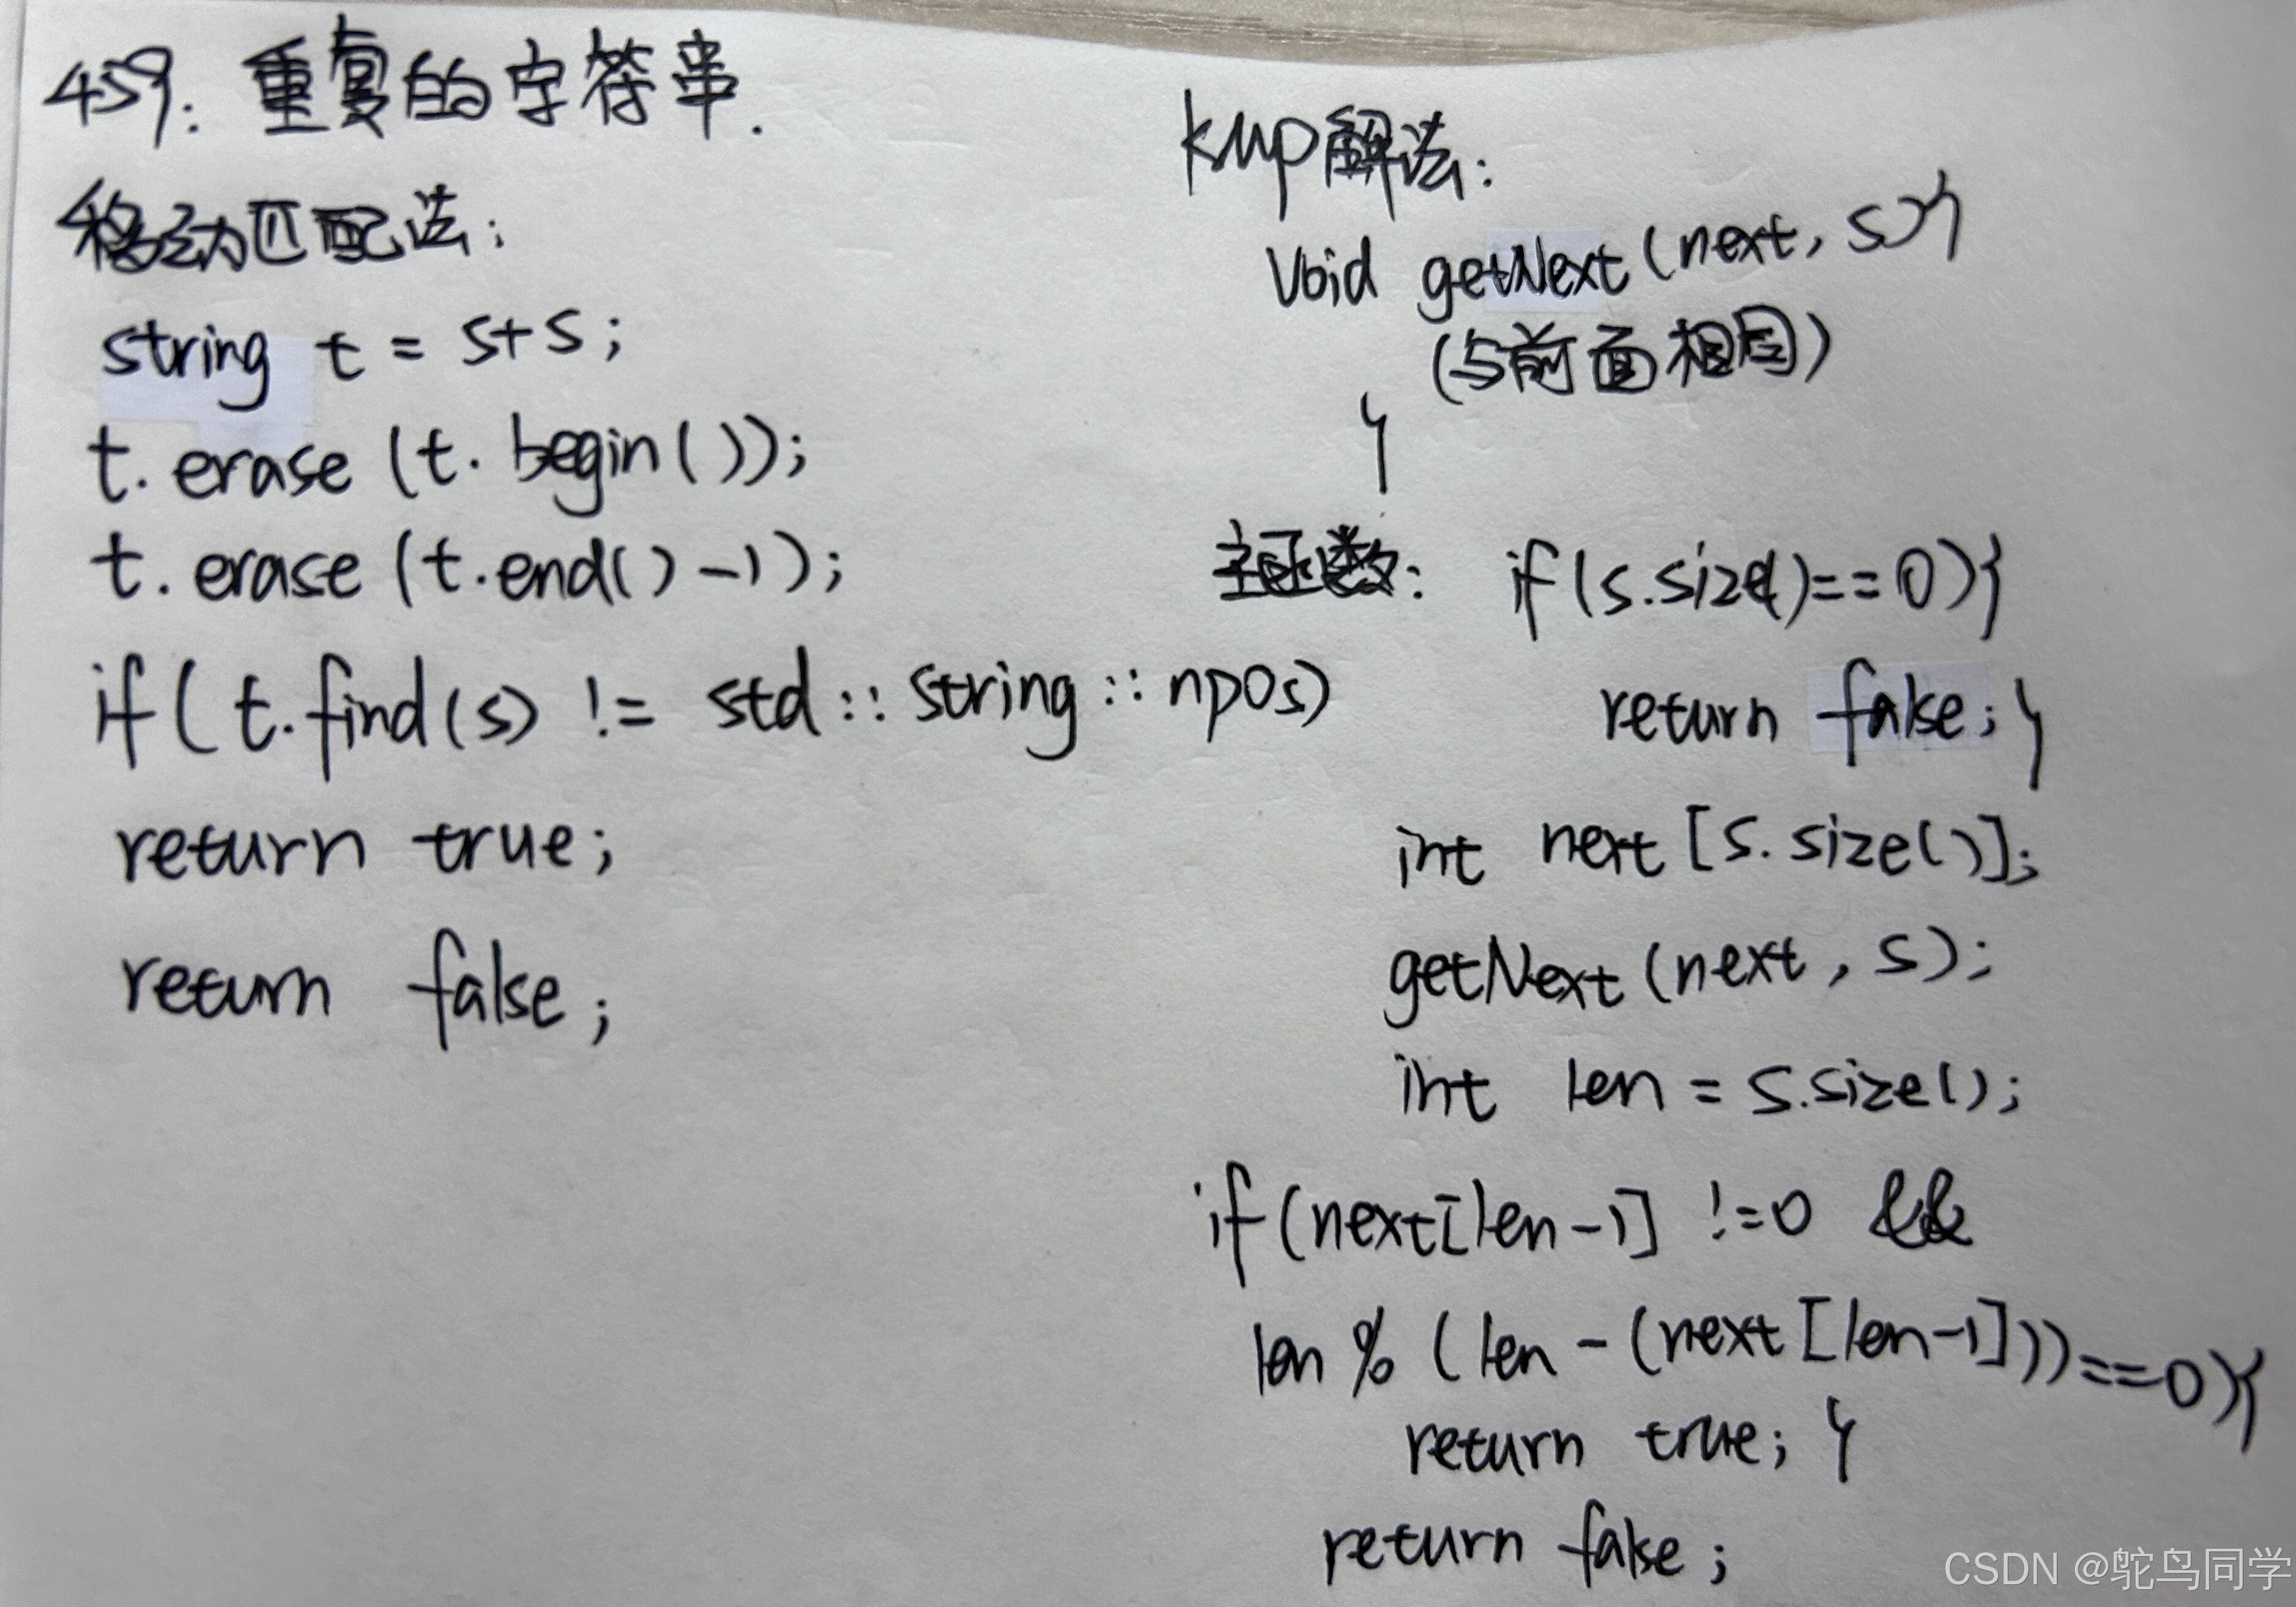 459. 重复的字符串.
移动匹配法:
string t = s+s;
t.erase (t.begin());
t.erase (t.end()-1);
if( t.find(s) != std::string::npos)
return true;
return false;
kmp解法:
void getNext(next, s){
(与前面相同)
}
主函数: if(s.size()==0){
return false;}
int next [s.size()];
getNext(next, s);
int len = s.size();
if(next[len-1] !=0 &&
len % (len - (next[len-1]))==0){
return true; }
return false;
CSDN @鸵鸟同学